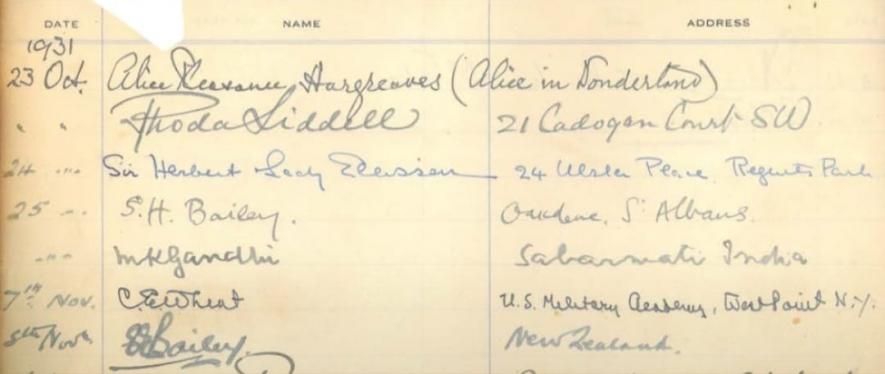 DATE NAME ADDRESS
1931
23 Oct. Alice Pleasance Hargreaves (Alice in Wonderland)
" " Rhoda Liddell 21 Cadogan Court SW
24 " Sir Herbert Lady 24 Ulster Place Regents Park
25 " S.H. Bailey. Oakdene, St Albans.
" " MKGandhi Sabarmati India
7th Nov. C.E. Wheat U.S. Military Academy, West Point N.Y.
8th Nov. Bailey. New Zealand.